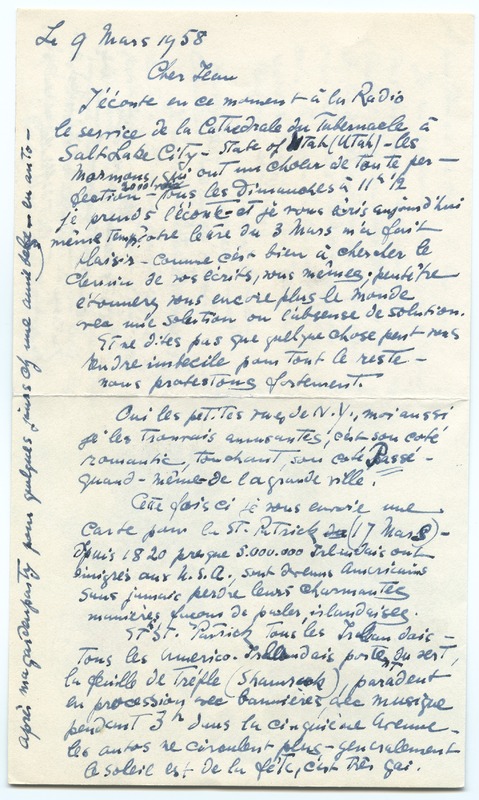 Le 9 Mars 1958
Cher Jean
J'écoute en ce moment à la Radio
le service de la Cathédrale du Tabernacle à
Salt Lake City - State of Utah (Utah) - les
Mormons, qui ont un choler de toute per-
fection - tous les Dimanches à 11h ½
je prends l'écoute et je vous écris aujourd'hui
même temps, votre lettre du 3 Mars m'a fait
plaisir - comme c'est bien à chercher le
chemin de vos écrits, vous mêmes. peut être
étonnerez vous encore plus le monde
avec une solution ou l'absense de solution.
Et ne dites pas que quelque chose peut vous
rendre imbecile pour tout le reste -
nous protestons fortement.
Oui les petites rues de N.Y., moi aussi
je les trouvais amusantes, c'est son coté
romantic, touchant, son coté Passé -
quand-même de la grande ville!
Cette fois ci je vous envoie une
carte pour la St. Patrick (17 Mars) -
Depuis 1820 presque 5.000.000 Irlandais ont
émigrés aux U.S.A., sont devenus Americains
sans jamais perdre leurs charmantes
manières, façons de parler, irlandaises.
St. Patrick tous les Irlandais -
tous les Americo-Irlandais porte du vert,
la feuille de trèfle (Shamrock) paradent
en procession avec bannières, avec musique
pendant 3h dans la cinquième Avenue -
les autos ne circulent plus - generalement
le soleil est de la fête, c'est très gai.
après ma garden party pour quelques jours chez une amie - en auto -